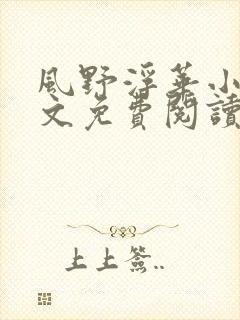 風野浮華小
文免費閱讀
上上簽..